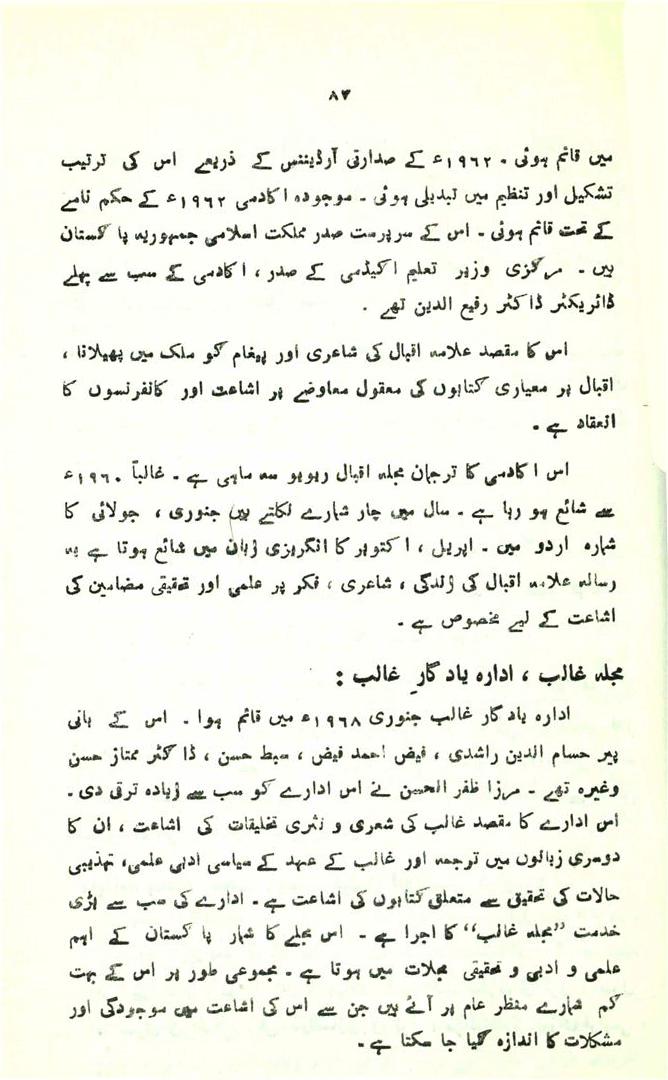 ۸۳
میں قائم ہوئی ۔ ۱۹۶۲ء کے صدارتی آرڈیننس کے ذریعے اس کی ترتیب
تشکیل اور تنظیم میں تبدیلی ہوئی ۔ موجودہ اکادمی ۱۹۶۲ء کے حکم نامے
کے تحت قائم ہوئی ۔ اس کے سرپرست صدر مملکت اسلامی جمہوریہ پاکستان
ہیں ۔ مرکزی وزیر تعلیم اکیڈمی کے صدر ، اکادمی کے سب سے پہلے
ڈائریکٹر ڈاکٹر رفیع الدین تھے ۔
اس کا مقصد علامہ اقبال کی شاعری اور پیغام کو ملک میں پھیلانا ،
اقبال پر معیاری کتابوں کی معقول معاوضے پر اشاعت اور کانفرنسوں کا
انعقاد ہے ۔
اس اکادمی کا ترجمان مجلہ اقبال ریویو سہ ماہی ہے ۔ غالباً ۱۹۶۰ء
سے شائع ہو رہا ہے ۔ سال میں چار شمارے نکلتے ہیں جنوری ، جولائی کا
شمارہ اردو میں ۔ اپریل ، اکتوبر کا انگریزی زبان میں شائع ہوتا ہے یہ
رسالہ علامہ اقبال کی زندگی ، شاعری ، فکر پر علمی اور تحقیقی مضامین کی
اشاعت کے لیے مخصوص ہے ۔
مجلہ غالب ، ادارہ یادگارِ غالب :
ادارہ یادگار غالب جنوری ۱۹۶۸ء میں قائم ہوا ۔ اس کے بانی
پیر حسام الدین راشدی ، فیض احمد فیض ، سبط حسن ، ڈاکٹر ممتاز حسن
وغیرہ تھے ۔ مرزا ظفر الحسن نے اس ادارے کو سب سے زیادہ ترقی دی ۔
اس ادارے کا مقصد غالب کی شعری و نثری تخلیقات کی اشاعت ، ان کا
دوسری زبانوں میں ترجمہ اور غالب کے عہد کے سیاسی ادبی علمی، تہذیبی
حالات کی تحقیق سے متعلق کتابوں کی اشاعت ہے ۔ ادارے کی سب سے بڑی
خدمت ’’مجلہ غالب‘‘ کا اجرا ہے ۔ اس مجلے کا شمار پاکستان کے اہم
علمی و ادبی و تحقیقی مجلات میں ہوتا ہے ۔ مجموعی طور پر اس کے بہت
کم شمارے منظر عام پر آئے ہیں جن سے اس کی اشاعت میں موجودگی اور
مشکلات کا اندازہ کیا جا سکتا ہے ۔